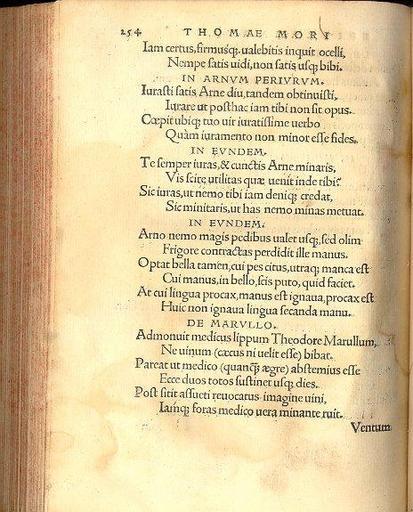 254 THOMAE MORI
Iam certus, firmusq́; ualebitis inquit ocelli,
Nempe satis uidi, non satis usq; bibi.
IN ARNVM PERIVRVM.
Iurasti satis Arne diu, tandem obtinuisti,
Iurare ut posthac iam tibi non sit opus.
Cœpit ubiq; tuo uir iuratissime uerbo
Quàm iuramento non minor esse fides.
IN EVNDEM.
Te semper iuras, & cunctis Arne minaris,
Vis scire utilitas quæ uenit inde tibi?
Sic iuras, ut nemo tibi iam deniq; credat,
Sic minitaris, ut has nemo minas metuat.
IN EVNDEM.
Arno nemo magis pedibus ualet usq; sed olim
Frigore contractas perdidit ille manus.
Optat bella tamen, cui pes citus, utraq; manca est
Cui manus, in bello, scis puto, quid faciet.
At cui lingua procax, manus est ignaua, procax est
Huic non ignaua lingua secanda manu.
DE MARVLLO.
Admonuit medicus lippum Theodore Marullum,
Ne uinum (cæcus ni uelit esse) bibat.
Pareat ut medico (quanq̃; ægre) abstemius esse
Ecce duos totos sustinet usq; dies.
Post sitit assueti reuocatus imagine uini,
Iamq; foras medico uera minante ruit.
Ventum